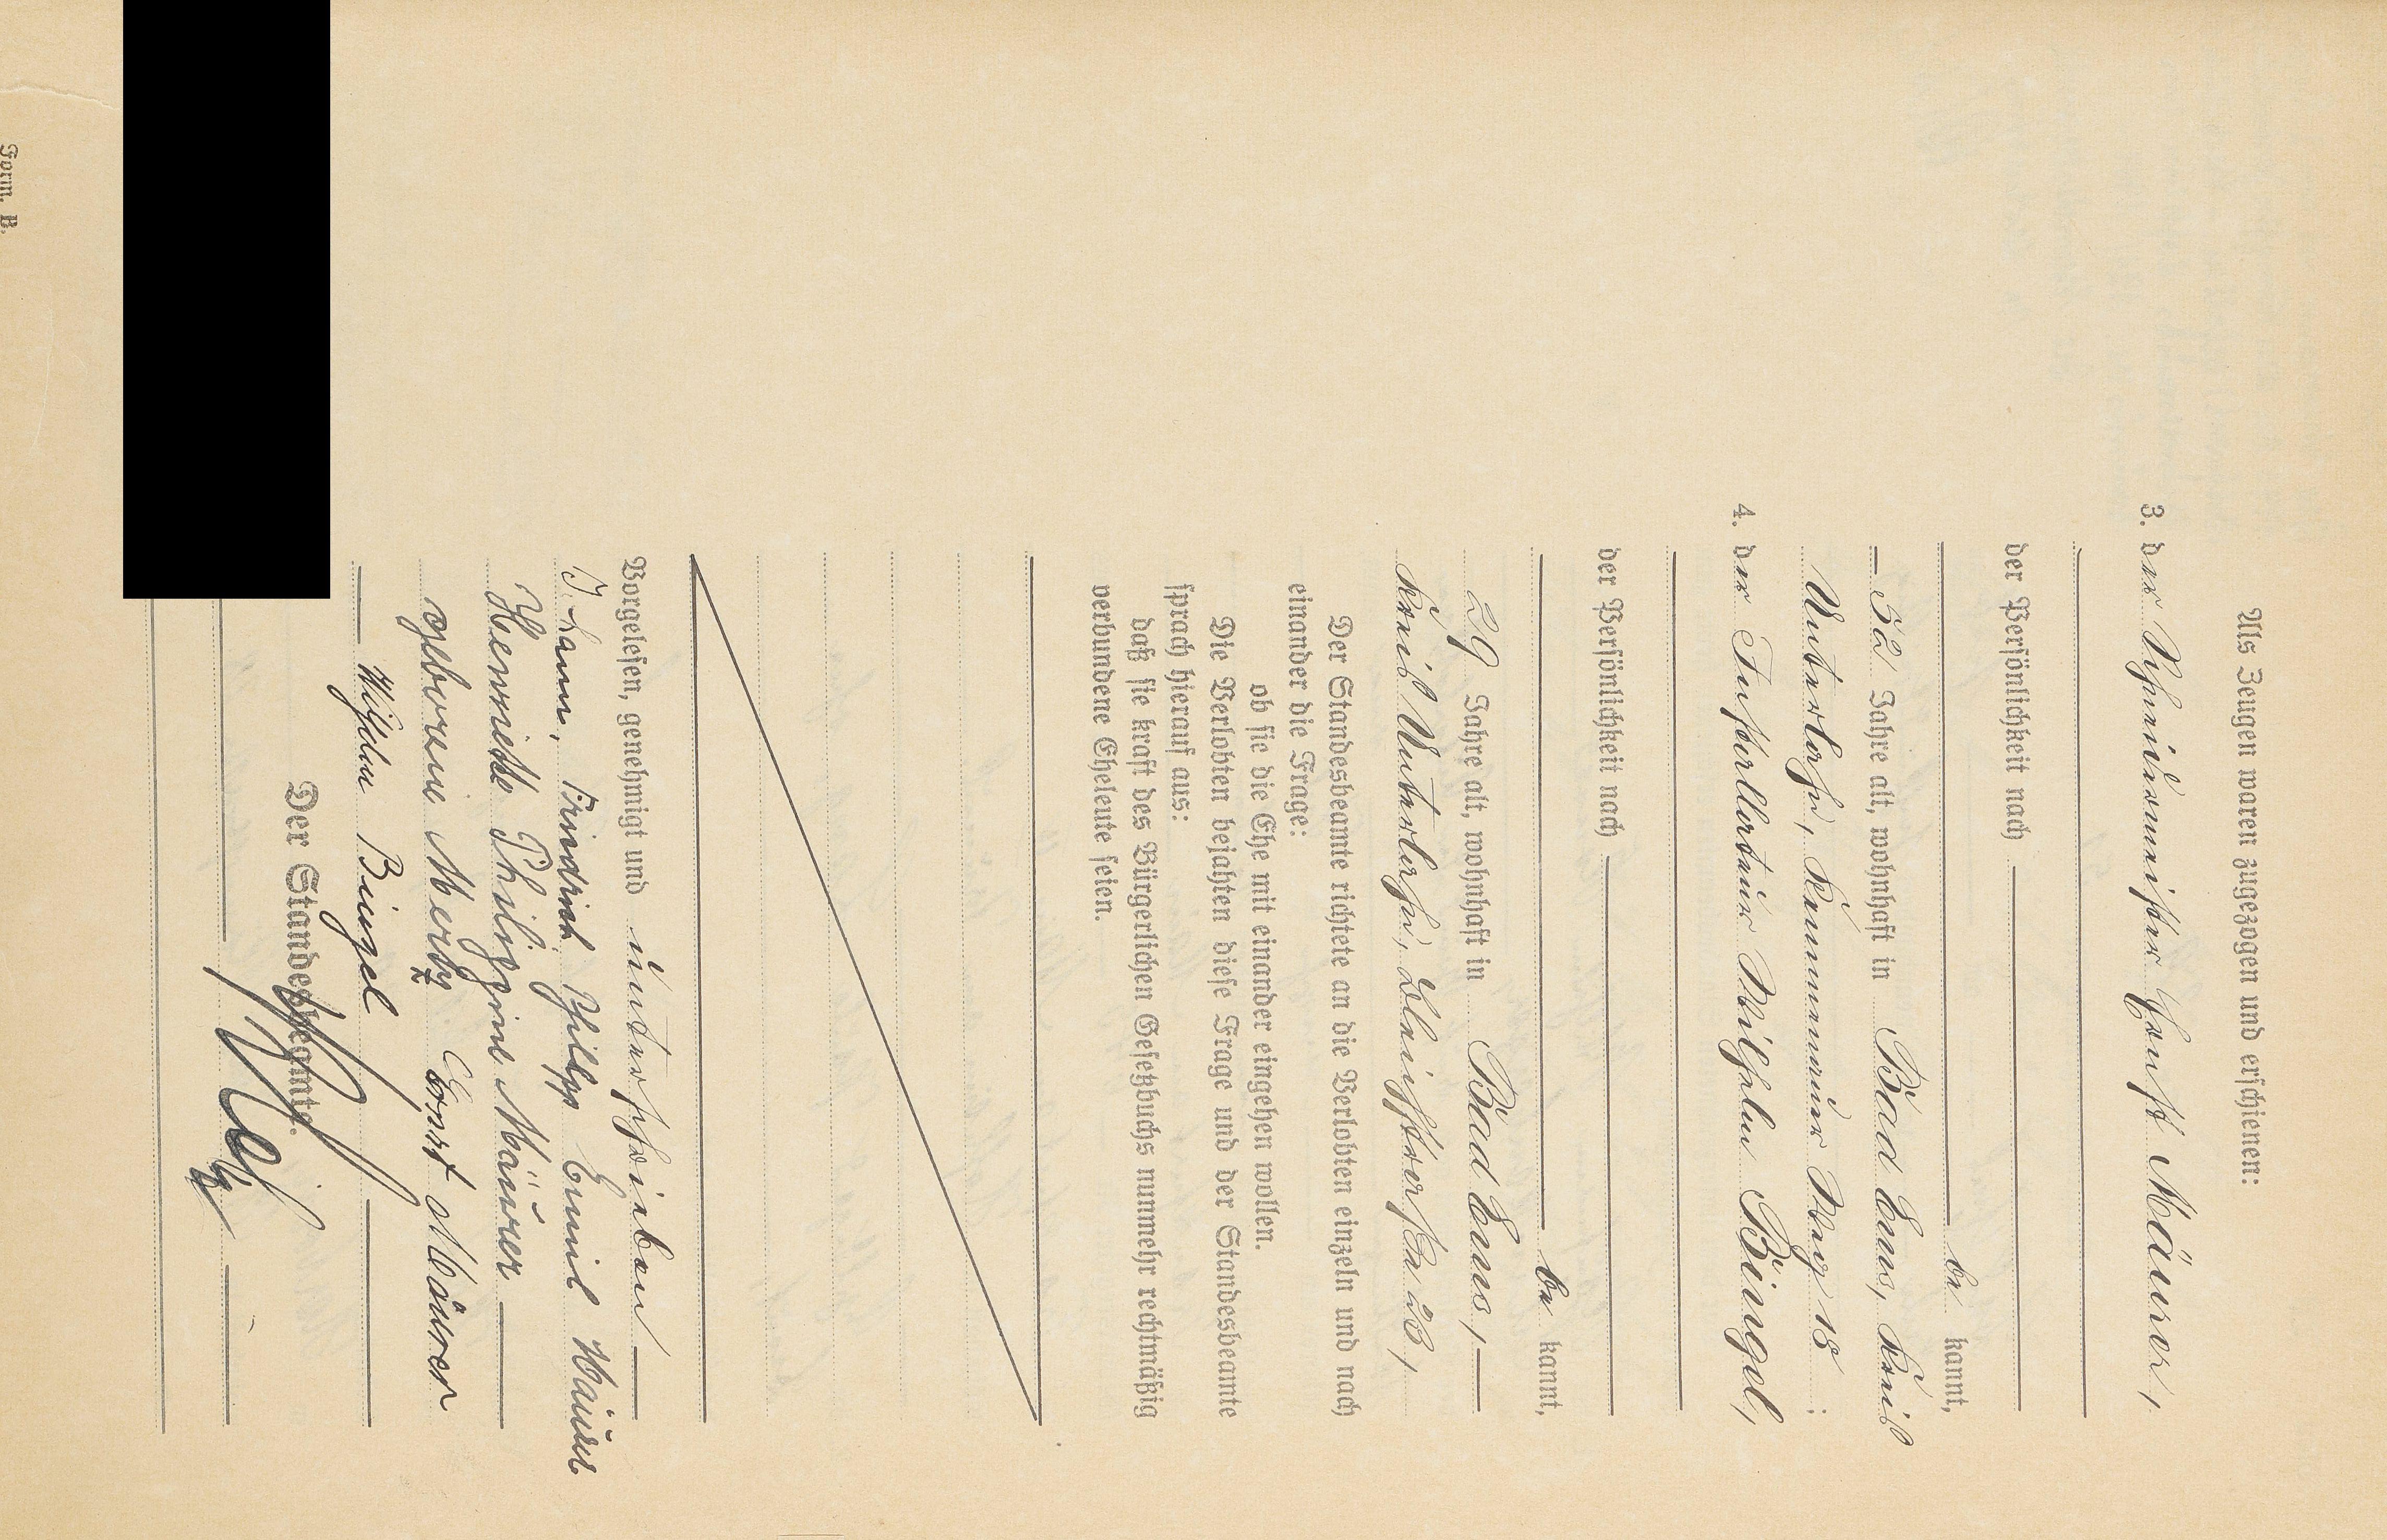 Als Zeugen waren zugezogen und erschienen:
3. der Schreinermeister Ernst Mäurer,
der Persönlichkeit nach
be kannt,
32 Jahre alt, wohnhaft in Bad Ems, Kreis
Unterlahn, Kemmenauer Weg 18
4. der Wilhelm Bingel,
der Persönlichkeit nach
be kannt,
29 Jahre alt, wohnhaft in Bad Ems,
Kreis Unterlahn, 23,
Der Standesbeamte richtete an die Verlobten einzeln und nach
einander die Frage:
ob sie die Ehe mit einander eingehen wollen.
Die Verlobten bejahten diese Frage und der Standesbeamte
sprach hierauf aus:
daß sie kraft des Bürgerlichen Gesetzbuchs nunmehr rechtmäßig
verbundene Eheleute seien.
Vorgelesen, genehmigt und unterschrieben
Friedrich Philipp Emil Mäurer
Henriette Philippine Mäurer
geborene Merbz Ernst Mäurer
Wilhelm Bingel
Der Standesbeamte.
Form. B.